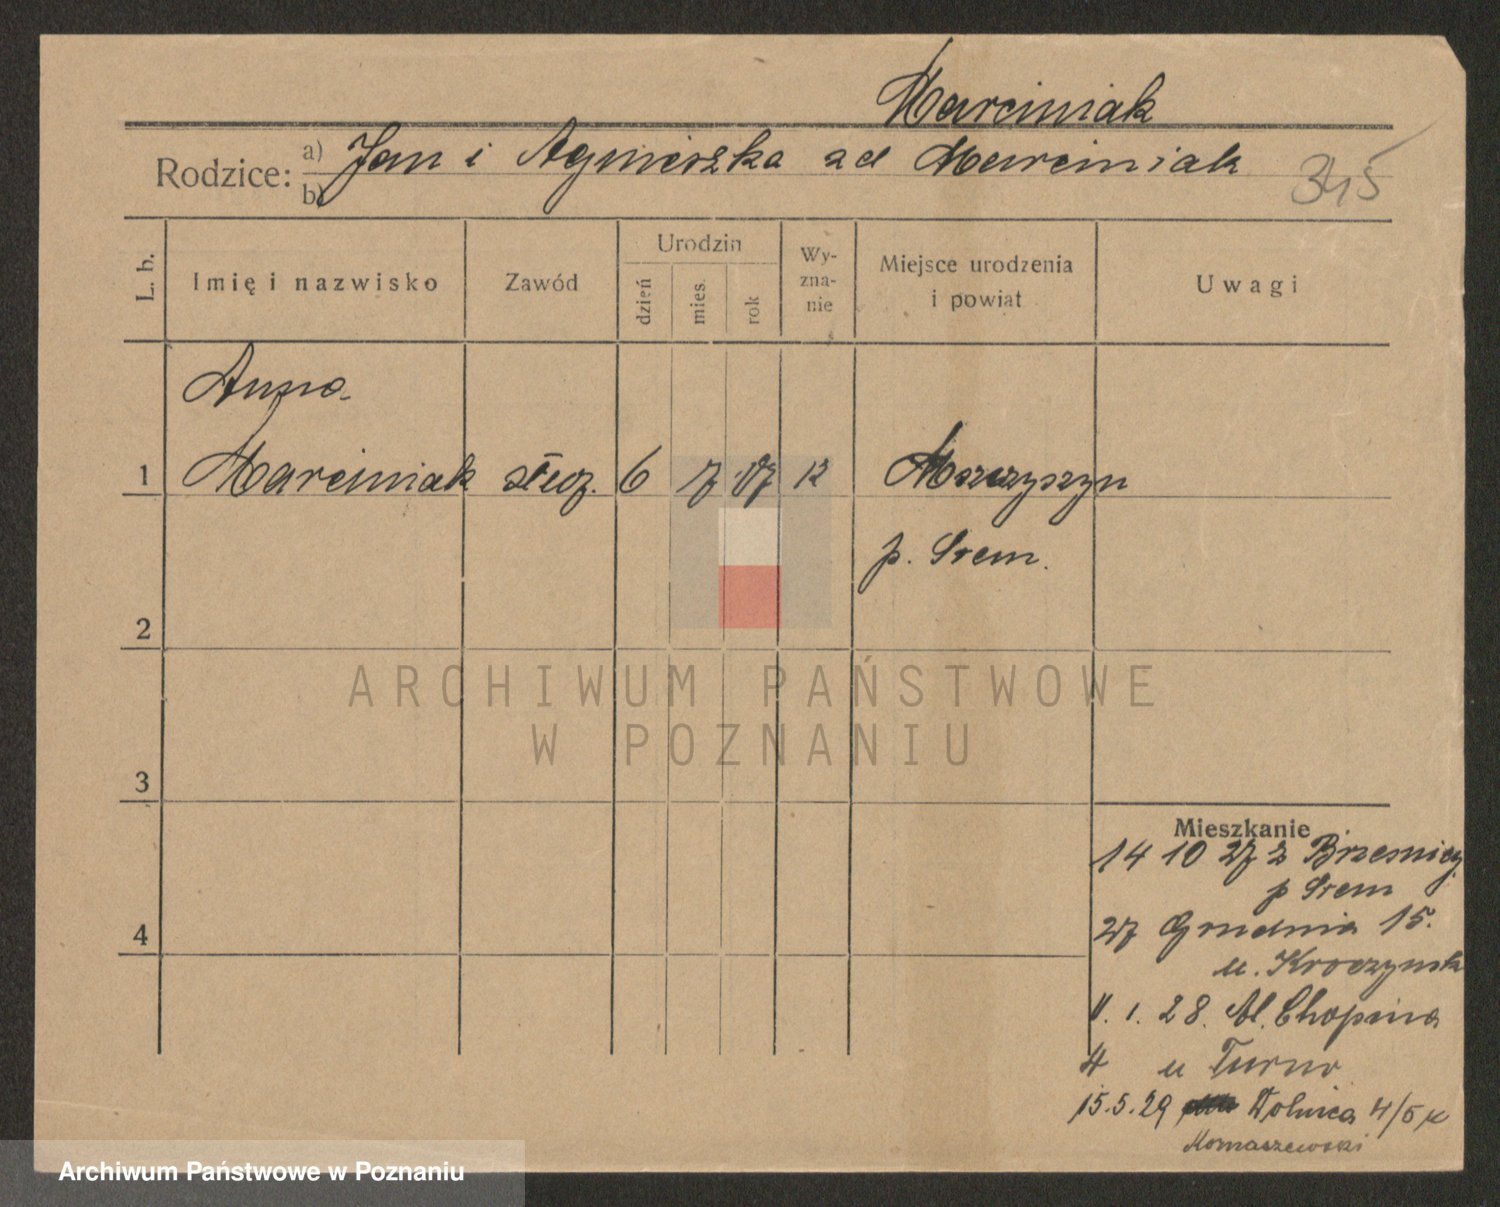 Marciniak
Rodzice: a) Jan i Agnieszka zd Marciniak
b)
345
L. b.
Imię i nazwisko
Zawód
Urodzin
dzień
mies.
rok
Wy-
zna-
nie
Miejsce urodzenia
i powiat
Uwagi
Anna
1 Marciniak służ. 6 7 07 k Mszczyszyn
p. Srem.
2
3
4
ARCHIWUM PAŃSTWOWE
W POZNANIU
Mieszkanie
14 10 27 z
p Srem
27 Grudnia 15.
u.
1. 28. Al. Chopina
4 u Turno
15.5.29 Dolnica 4/5
Archiwum Państwowe w Poznaniu